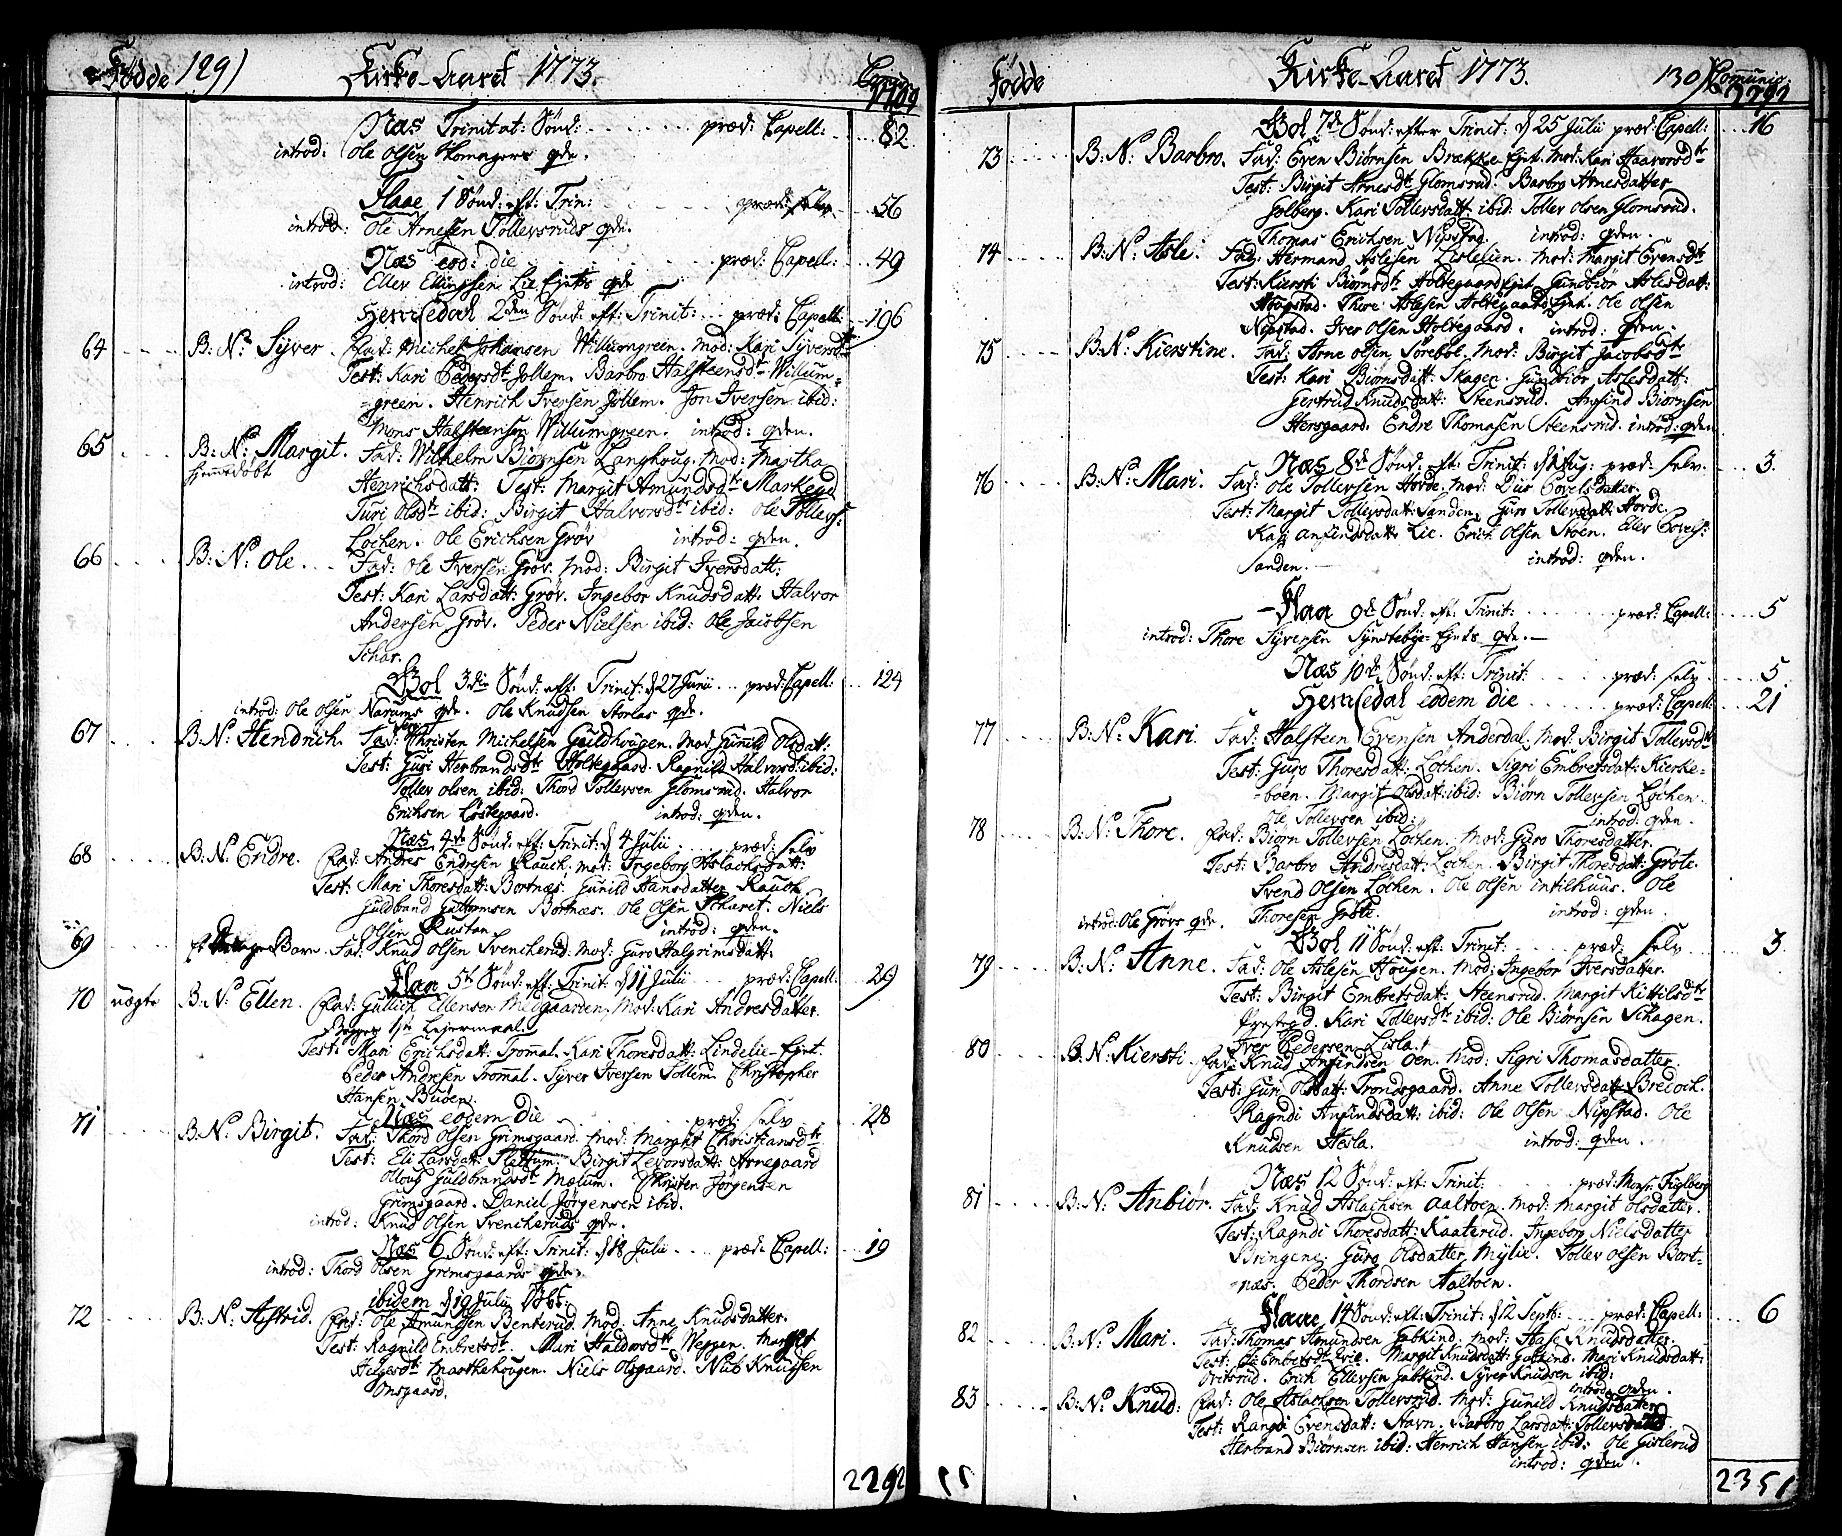 Fødde 129) Kirke-Aaret 1773.
Næs Trinitat: Sønd: præd: Capell: 82
introd: Ole Olsen qdn.
Flaae 1 Sønd: eft: Trin: præd: Selv 56
introd: Ole Arnesen Tollersruds qdn.
Næs eod: die præd: Capell: 49
introd: Eller Ellingsen Lie Ejets qde
Hemsedal 2den Sønd: eft: Trinit: præd: Capell: 196
64 B: N: Syver. Fad: Michel Johansen Willumgreen. Mod: Kari Syversdr
Test: Kari Pedersdr Jollem. Barbro Halsteensdr Willum=
=green. Henrich Iversen Jollem. Jon Iversen ibid:
Mons Halsteensen Willumgreen. introd: qden.
65 B: N: Margit. Fad: Wilhelm Biørnsen Langhoug. Mod: Martha
hjemmedøbt Henrichsdatt: Test: Margit Amundsdr Markegd
Turi Olsdr ibid: Birgit Halvorsdr ibid: Ole Tollevs:
Løchen. Ole Erichsen Grøv introd: qden.
66 B: N: Ole. Fad: Ole Iversen Grøv. Mod: Birgit Iversdatt:
Test: Kari Larsdatt: Grøv. Ingebor Knudsdatt: Halvor
Andersen Grøv. Peder Nielsen ibid: Ole Jacobsen
Schar.
Gol 3die Sønd: eft: Trinit: d 27 Junii præd: Capell: 124
introd: Ole Olsen Narums qde. Ole Knudsen Storlas qde.
67 B: N: Hendrich. Fad: Christen Michelsen Guldhougen. Mod: Gunild Olsdatt:
Test: Guri Herbrandsdr Holtegaard. Ragnild Halvorsdr ibid:
Tollev Olsen ibid: Thord Tollevsen Glomsrud. Halvor
Eriksen Løstegaard. introd: qden.
Næs 4de Sønd: eft: Trinit: d 4 Julii præd: Selv
68 B: N: Endre. Fad: Andres Endresen Rauch. Mod: Ingeborg Aslachsdatt:
Test: Mari Thoresdatt: Bortnæs. Gunild Hansdatter Rauch
Guldbrand Guttormsen Bortnæs. Ole Olsen Scharet: Niels
Olsen Rustan introd: qden.
69 Barn. Fad: Knud Olsen Svencherud. Mod: Guro Halgrimsdatt:
Flaa 5te Sønd: eft: Trinit: d 11 Julii præd: Capell: 29
70 uægte B: N: Ellen. Fad: Gullich Ellensen Midgaarden. Mod: Kari Andresdatter.
Begges 1ste Lejermaal.
Test: Mari Erichsdatt: Trommal. Kari Thoresdatt: Lindelie Ejet.
Peder Andresen Trommal. Syver Iversen Jollem. Christopher
Hansen Buøen.
Næs eodem die præd: Selv 28
71 B: N: Birgit. Fad: Thord Olsen Grimsgaard. Mod: Margit Christiansdr
Test: Eli Larsdatt: Slettum. Birgit Levorsdatt: Arnegaard
Oloug Guldbrandsdr Mælum. Christen Jørgensen
Grimsgaard. Daniel Jørgensen ibid.
introd: Knud Olsen Svencheruds qde.
Næs 6 Sønd: eft: Trinit: d 18 Julii præd: Capell: 19
introd: Thord Olsen Grimsgaards qde.
ibidem d 19 Julii
72 B: N: Astrid. Fad: Ole Amundsen Benterud. Mod: Anne Knudsdatter.
Test: Ragnild Embretsdr. Mari Haldorsdr Weppen. Margit
Helgesdr Marthehougen. Niels Olsgaard. Nub Knudsen
Onsgaard.
2292
Fødde Kirke-Aaret 1773. 130) Communic:
2292
Gol 7de Sønd: efter Trinit: d 25 Julii præd: Capell: 16
73 B: N: Barbro. Fad: Even Biørnsen Brække Ejet. Mod: Kari Haavorsdr
Test: Birgit Arnesdr Glomsrud. Barbro Arnesdatter
Golberg. Kari Tollevsdatt: ibid: Tollev Olsen Glomsrud.
Thomas Erichsen Nipstad. introd: qden.
74 B: N: Asle. Fad: Hermand Aslesen Lislelien. Mod: Margit Evensdr
Test: Kiersti Biørnsdr Holtegaard Ejet. Gundbiør Aslesdatt:
Thore Aslesen Holtegaards Ejet. Ole Olsen
Nipstad. Iver Olsen Holtegaard. introd: qden.
75 B: N: Kierstine. Fad: Arne Olsen Sørebøl. Mod: Birgit Jacobsdr
Test: Kari Biørnsdatt: Skagen. Gundbiør Aslesdatt:
Gertrud Knudsdatt: Steensrud. Anfind Biørnsen
Hersgaard. Endre Thomasen Steensrud. introd: qden
Næs 8de Sønd: eft: Trinit: d 1 Aug: præd: Selv. 3.
76 B: N: Mari. Fad: Ole Tollevsen Horde. Mod: Liv Povelsdatter.
Test: Margit Tollevsdatt: Sanden. Guro Tollevsdatt: Horde.
Kari Anfindsdatt: Lie. Erich Olsen Stoen. Elev Povels:
Sanden. introd: qden.
Flaa 9de Sønd: eft: Trinit: præd: Capell: 5
introd: Thore Syversen Synstebye Ejets qde.
Næs 10de Sønd: eft: Trinit: præd: Selv 5
Hemsedal eodem die præd: Capell: 21
77 B: N: Kari. Fad: Halsteen Evensen Anderdal. Mod: Birgit Tollevsdr
Test: Guro Thoresdatt: Løchen. Sigri Embretsdatt: Kierke=
=bøen. Margit Olsdatt: ibid: Biørn Tollevsen Løchen.
Ole Tollevsen ibid: introd: qden.
78 B: N: Thore. Fad: Biørn Tollevsen Løchen. Mod: Guro Thoresdatter.
Test: Barbro Andresdatt: Løchen. Birgit Thoresdatt: Grøte.
Svend Olsen Løchen. Ole Olsen Intilhuus. Ole
introd: Ole Grøvs qde. Thoresen Grøte. introd: qden.
Gol 11 Sønd: eft: Trinit: præd: Selv 3.
79 B: N: Anne. Fad: Ole Aslesen Hougen. Mod: Ingebor Iversdatter.
Test: Birgit Embretsdatt: Steensrud. Margit Kittilsdr
Kari Tollevsdr ibid: Ole Biørnsen Schagen.
Iver Pedersen Lisla.
80 B: N: Kiersti. Fad: Knud Anfindsen Oen. Mod: Sigri Thomasdatter.
Test: Guri Olsdatt: Trondsgaard. Anne Tollevsdatt: Bredoch.
Ragndi Anfindsdatt: ibid: Ole Olsen Nipstad. Ole
Knudsen Hesla. introd: qden.
Næs 12 Sønd: eft: Trinit: præd: Mons:
81 B: N: Anbiør. Fad: Knud Aslachsen Aaltoen. Mod: Margit Olsdatter.
Test: Ragndi Thoresdatt: Kaaterud. Ingeborg Nielsdatter
Bringene. Guro Olsdatter Mylie. Tollev Olsen Bort=
=næs. Peder Thordsen Aaltoen.
Flaae 14 Sønd: eft: Trinit: d 12 Septb: præd: Capell: 6
82 B: N: Mari. Fad: Thomas Amundsen Gubkind. Mod: Aase Knudsdatter.
Test: Ole Embretsdr Qvie. Margit Knudsdatt: Gubkind. Mari Knudsdatt:
Erich Ellevsen Gubkind. Syver Knudsen ibid:
introd: qden.
83 B: N: Knud: Fad: Ole Aslachsen Tollevsrud. Mod: Gunild Knudsdatter
Test: Rangdi Evensdatt: Stavn. Barbro Larsdatt: Tollevsrud
Herbrand Biørnsen ibid: Henrich Hansen ibid: Ole Gislerud
introd: qden.
2351